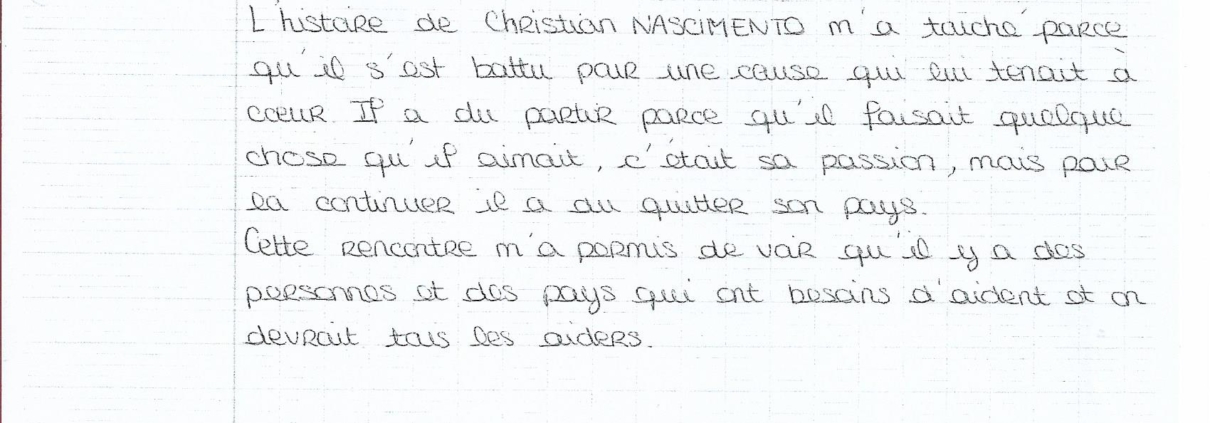 L'histoire de Christian NASCIMENTO m'a touché parce
qu'il s'est battu pour une cause qui lui tenait à
cœur Il a du partir parce qu'il faisait quelque
chose qu'il aimait, c'était sa passion, mais pour
la continuer il a du quitter son pays.
Cette rencontre m'a permis de voir qu'il y a des
personnes et des pays qui ont besoins d'aident et on
devrait tous les aiders.